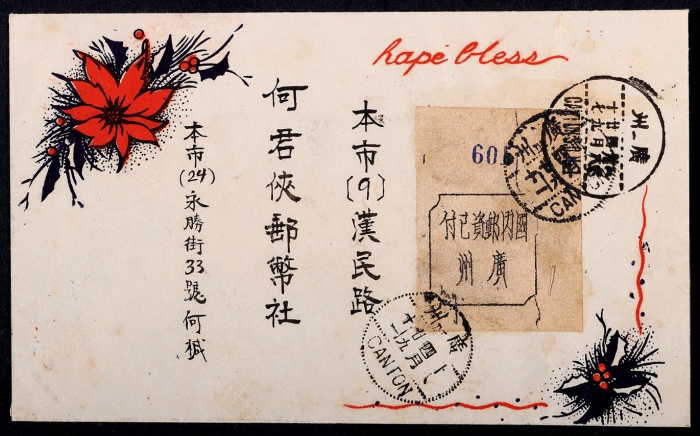 hape bless
本市(9)漢民路
何君俠郵幣社
本市(24)永勝街33號何
601
國內郵資已付
廣州
廣州
CANTON
廣州
CANTON